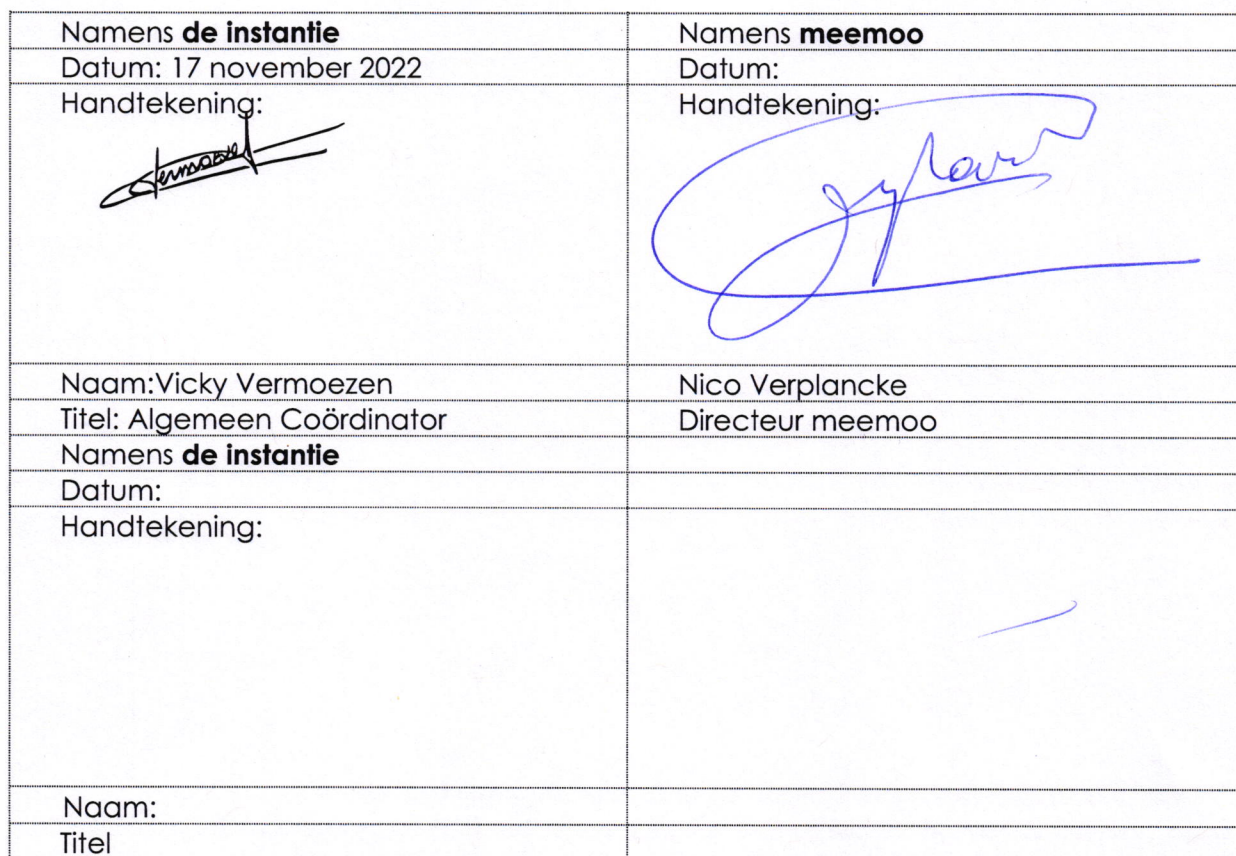 Namens de instantie
Namens meemoo
Datum: 17 november 2022
Datum:
Handtekening:
Handtekening:
Naam:Vicky Vermoezen
Nico Verplancke
Titel: Algemeen Coördinator
Directeur meemoo
Namens de instantie
Datum:
Handtekening:
Naam:
Titel